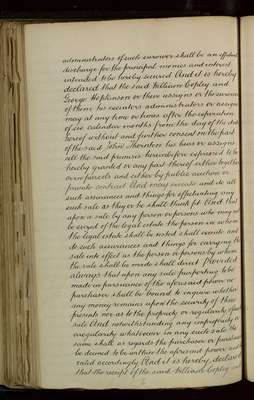 administrators of such survivor shall be an effectual
discharge for the principal monies and interest
intended to be hereby secured And it is hereby
declared that the said William Copley and
George Hopkinson or their assigns or the survivor
of them his executors administrators or assigns
may at any time or times after the expiration
of six calendar months from the day of the date
hereof without any further consent on the part
of the said John Thornton his heirs or assigns
sell the said premises hereinbefore expressed to be
hereby granted or any part thereof either together
or in parcels and either by public auction or
private contract And may execute and do all
such assurances and things for effectuating any
such sale as they or he shall think fit And that
upon a sale by any person or persons who may not
be seized of the legal estate the person in whom
the legal estate shall be vested shall execute and
do such assurances and things for carrying the
sale into effect as the person or persons by whom
the sale shall be made shall direct Provided
always that upon any sale purporting to be
made in pursuance of the aforesaid power no
purchaser shall be bound to enquire whether
any money remains upon the security of these
presents nor as to the propriety or regularity of such
sale And notwithstanding any impropriety or
irregularity whatsoever in any such sale the
same shall as regards the purchaser or purchasers
be deemed to be within the aforesaid power and
valid accordingly And it is hereby declared
that the receipt of the said William Copley and